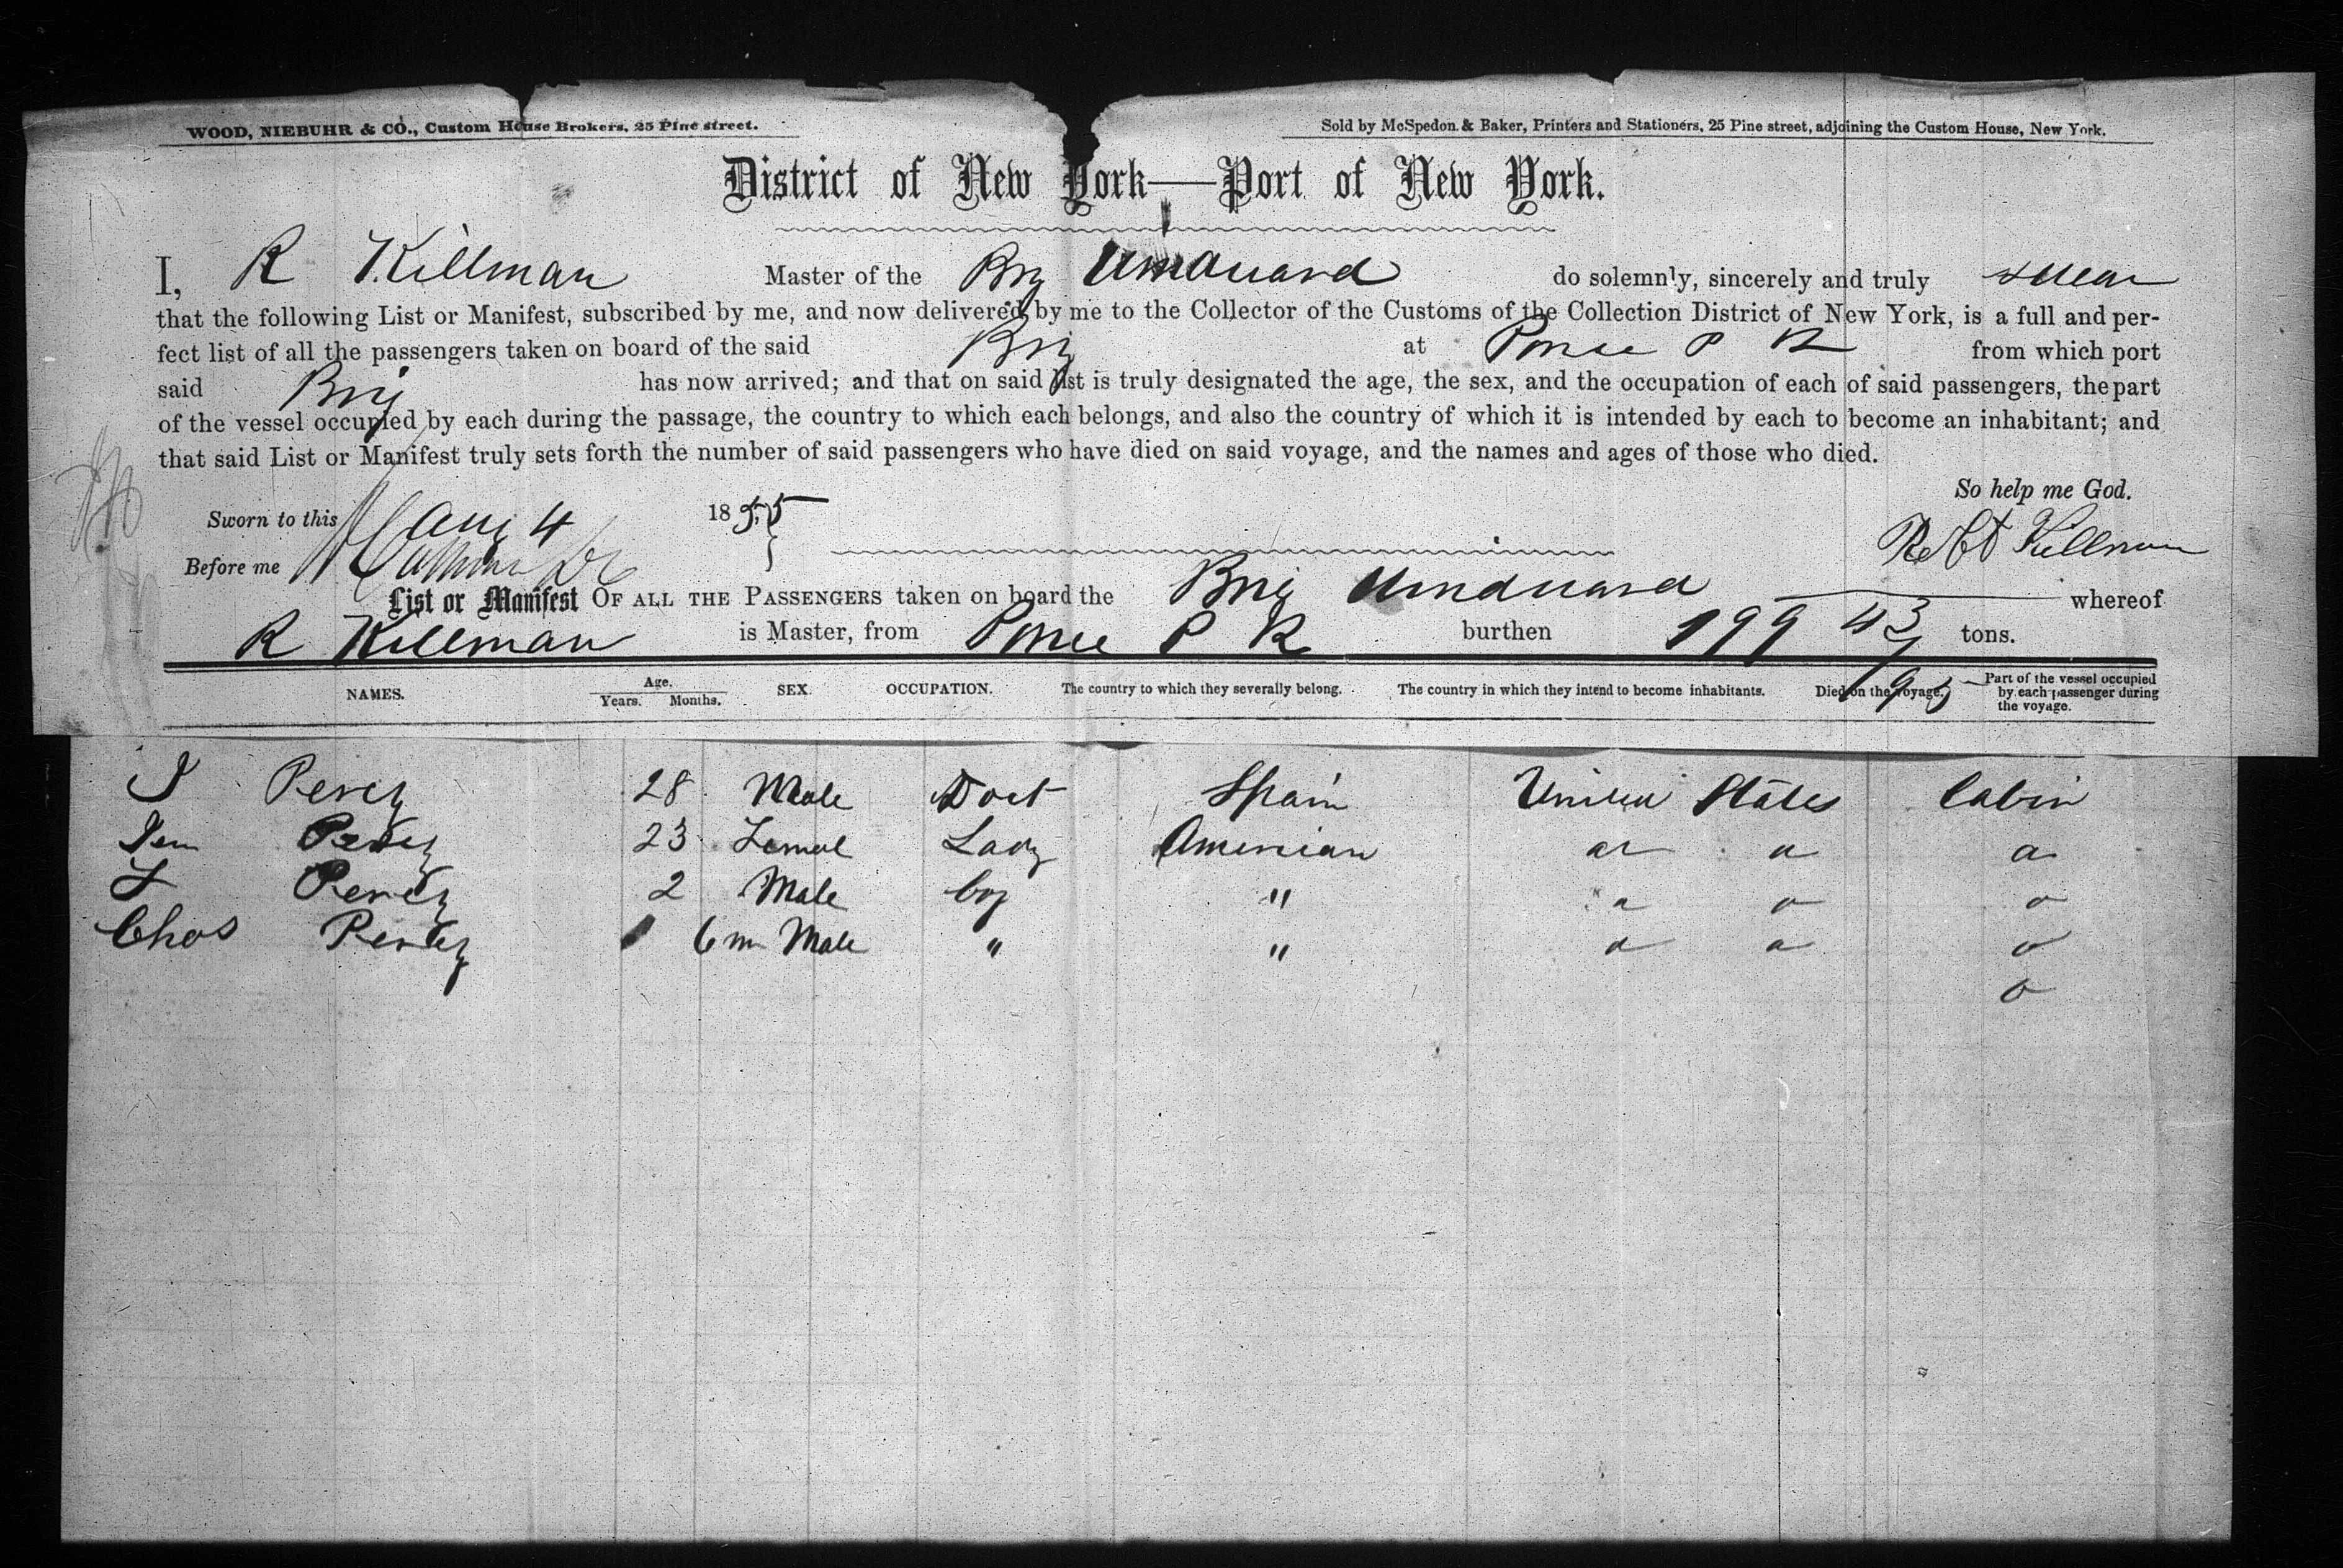 WOOD, NIEBUHR & CO., Custom House Brokers, 25 Pine street.
Sold by McSpedon & Baker, Printers and Stationers, 25 Pine street, adjoining the Custom House, New York.
District of New York—Port of New York.
I, R Killman Master of the Brig Umduard do solemnly, sincerely and truly swear
that the following List or Manifest, subscribed by me, and now delivered by me to the Collector of the Customs of the Collection District of New York, is a full and per-
fect list of all the passengers taken on board of the said Brig at Ponce P R from which port
said Brig has now arrived; and that on said list is truly designated the age, the sex, and the occupation of each of said passengers, the part
of the vessel occupied by each during the passage, the country to which each belongs, and also the country of which it is intended by each to become an inhabitant; and
that said List or Manifest truly sets forth the number of said passengers who have died on said voyage, and the names and ages of those who died.
So help me God.
Sworn to this Aug 4 1855
Robt Killman
Before me
List or Manifest OF ALL THE PASSENGERS taken on board the Brig Umduard whereof
R Killman is Master, from Ponce P R burthen 199 43/95 tons.
NAMES. Age. Years. Months. SEX. OCCUPATION. The country to which they severally belong. The country in which they intend to become inhabitants. Died on the voyage. Part of the vessel occupied by each passenger during the voyage.
J Perez 28 Male Doct Spain United States Cabin
Perez 23 Femal Lady American " " "
Perez 2 Male boy " " " "
Chas Perez 6 m Male " " " " "
"